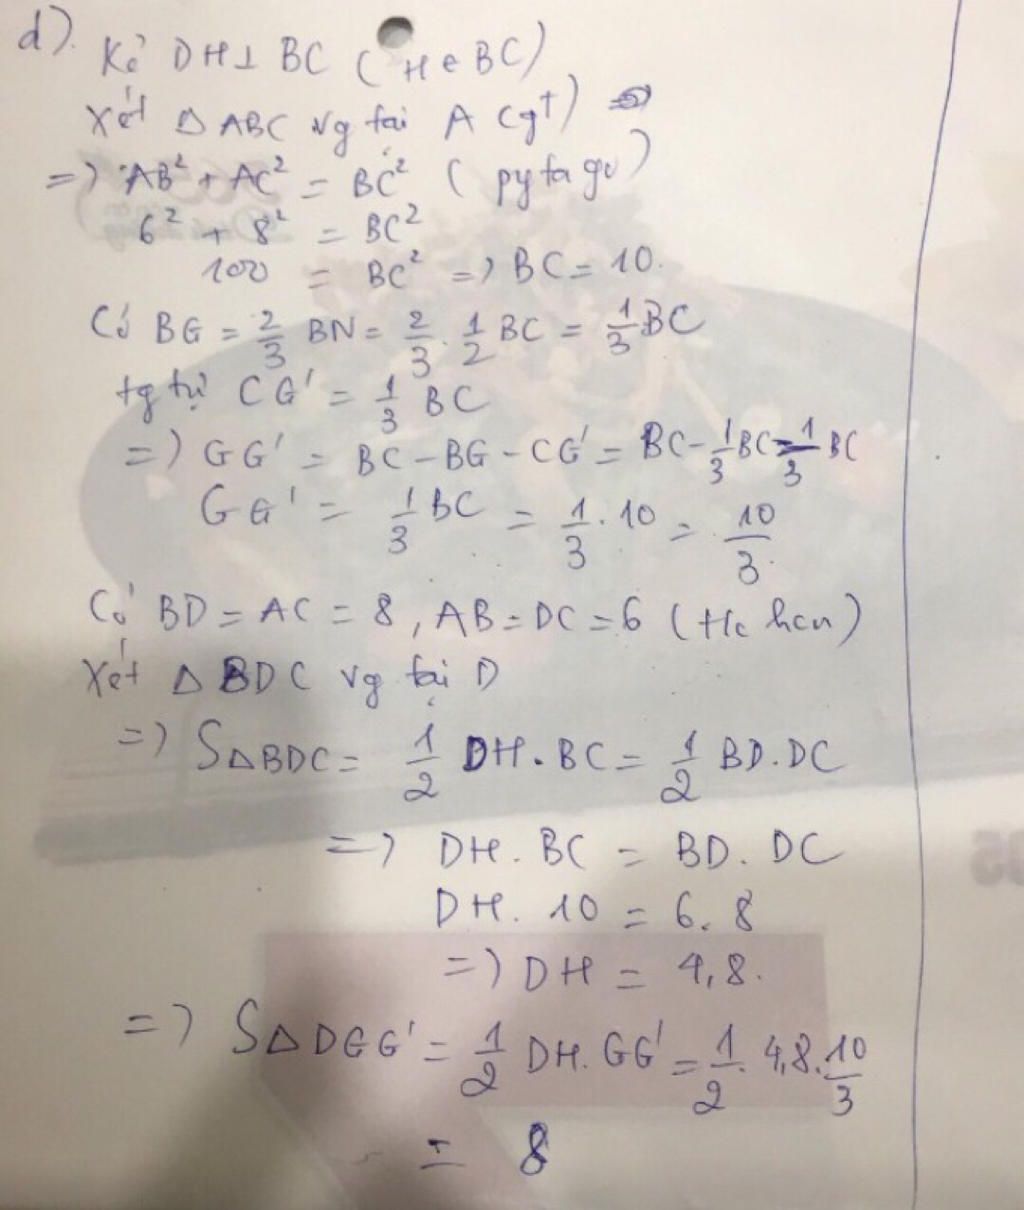 d).
Kẻ DH⊥ BC ( H ∈ BC)
Xét Δ ABC vg tại A (gt)
=) AB² + AC² = BC² ( pytago)
6² + 8² = BC²
100 = BC² =) BC = 10.
Có BG = 2/3 BN = 2/3 . 1/2 BC = 1/3 BC
tg tự CG' = 1/3 BC
=) GG' = BC - BG - CG' = BC - 1/3 BC = 1/3 BC
GG' = 1/3 BC = 1/3 . 10 = 10/3.
Có BD = AC = 8 , AB = DC = 6 (t/c hcn)
Xét Δ BDC vg tại D
=) SΔBDC = 1/2 DH . BC = 1/2 BD . DC
=) DH . BC = BD . DC
DH . 10 = 6 . 8
=) DH = 4,8.
=) SΔDGG' = 1/2 DH . GG' = 1/2 . 4,8 . 10/3
= 8